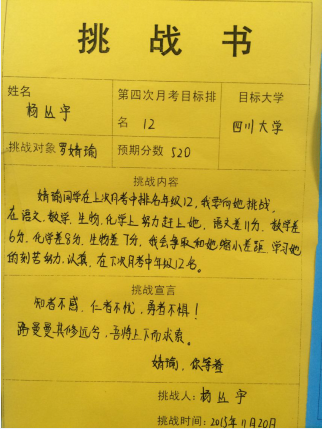 挑战书
姓名
杨丛宇
第四次月考目标排
名 12
目标大学
四川大学
挑战对象 罗婧瑜
预期分数 520
挑战内容
婧瑜同学在上次月考中排名年级12，我要向她挑战，
在语文、数学、生物、化学上努力赶上她，语文差11分，数学差
6分，化学差8分，生物差7分，我会争取和她缩小差距，学习她
的刻苦努力、认真，在下次月考中年级12名。
挑战宣言
知者不惑，仁者不忧，勇者不惧！
路曼曼其修远兮，吾将上下而求索。
婧瑜，你等着
挑战人：杨丛宇
挑战时间：2015年11月20日